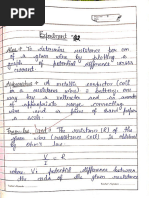 Experiment - 02
Aim → To determine resistance per cm
of a given wire by plotting a
graph of potential difference versus
current.
Apparatus → A metallic conductor (coil
or a resistance wire), a battery, one
way key, a voltmeter and an ammeter
of appropriate range, connecting
wires and a piece of sand paper
a scale.
Formulae Used → The resistance (R) of the
given wire (resistance coil) is obtained
by Ohm's law
V = R
I
where, V: Potential difference between
the ends of the given resistance